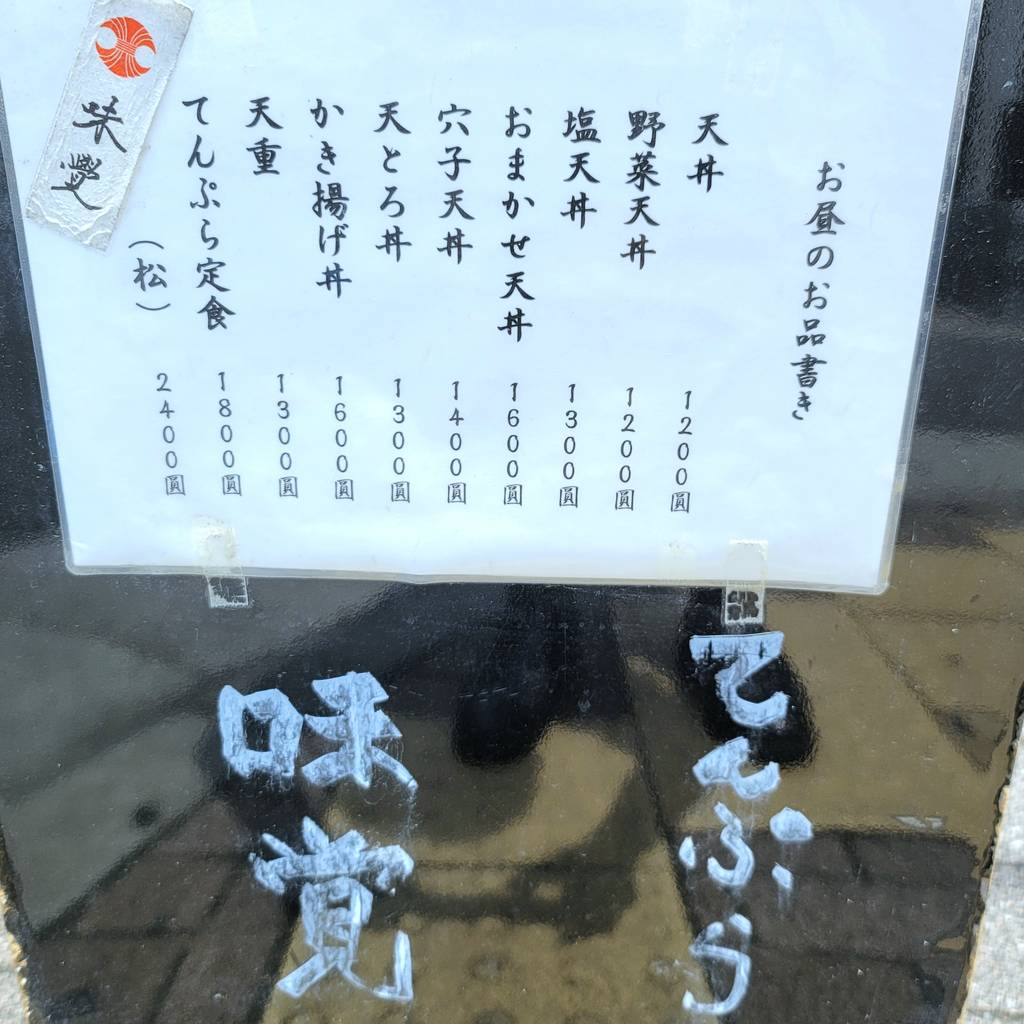 お昼のお品書き
天丼 1200圓
野菜天丼 1200圓
塩天丼 1300圓
おまかせ天丼 1600圓
穴子天丼 1400圓
天とろ丼 1300圓
かき揚げ丼 1600圓
天重 1300圓
てんぷら定食 1800圓
(松) 2400圓
味覺
てんぷら
味覚